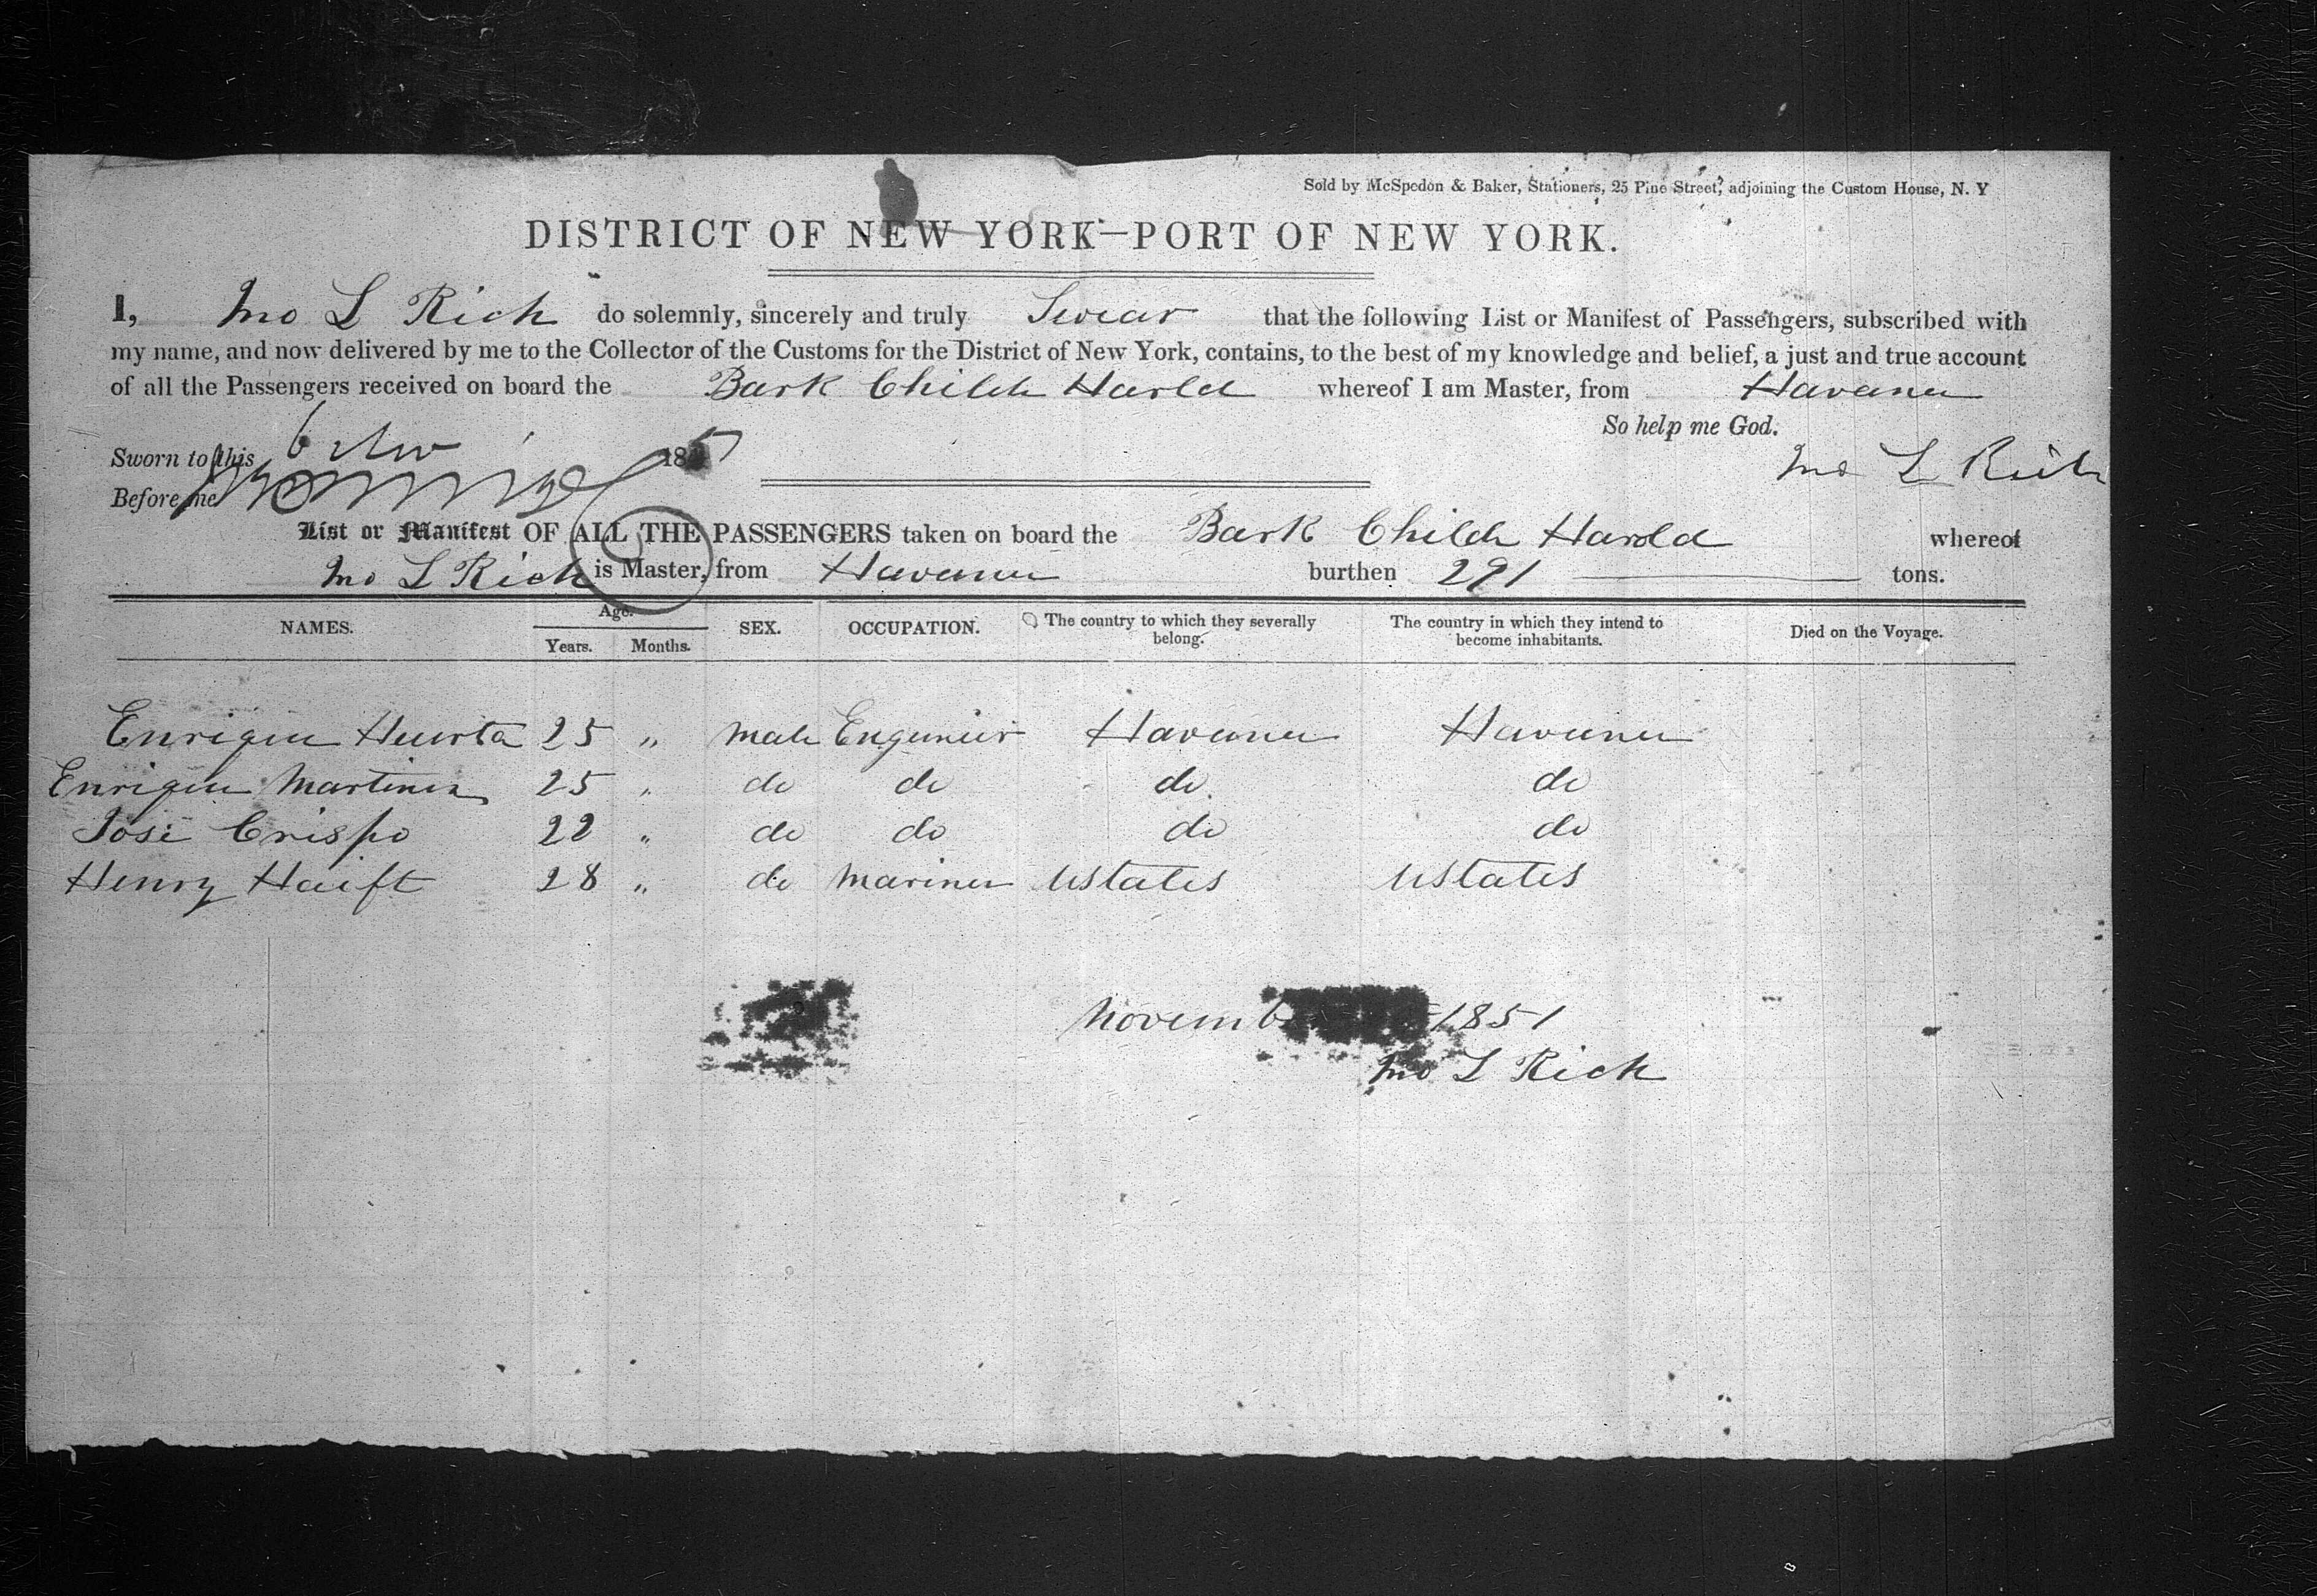 Sold by McSpedon & Baker, Stationers, 25 Pine Street, adjoining the Custom House, N. Y
DISTRICT OF NEW YORK—PORT OF NEW YORK.
I, Jno L Rich do solemnly, sincerely and truly Swear that the following List or Manifest of Passengers, subscribed with
my name, and now delivered by me to the Collector of the Customs for the District of New York, contains, to the best of my knowledge and belief, a just and true account
of all the Passengers received on board the Bark Childe Harld whereof I am Master, from Havana
So help me God.
Sworn to this 6 Nov 185
Jno L Rich
Before me
List or Manifest OF ALL THE PASSENGERS taken on board the Bark Childe Harold whereof
Jno L Rich is Master, from Havana burthen 291 tons.
NAMES. Age. Years. Months. SEX. OCCUPATION. The country to which they severally belong. The country in which they intend to become inhabitants. Died on the Voyage.
Enrique Huerta 25 " male Engineer Havana Havana
Enrique Martinez 25 " do do do do
José Crispo 22 " do do do do
Henry Haift 28 " do Mariner Ustates Ustates
Novemb 1851
Jno L Rich